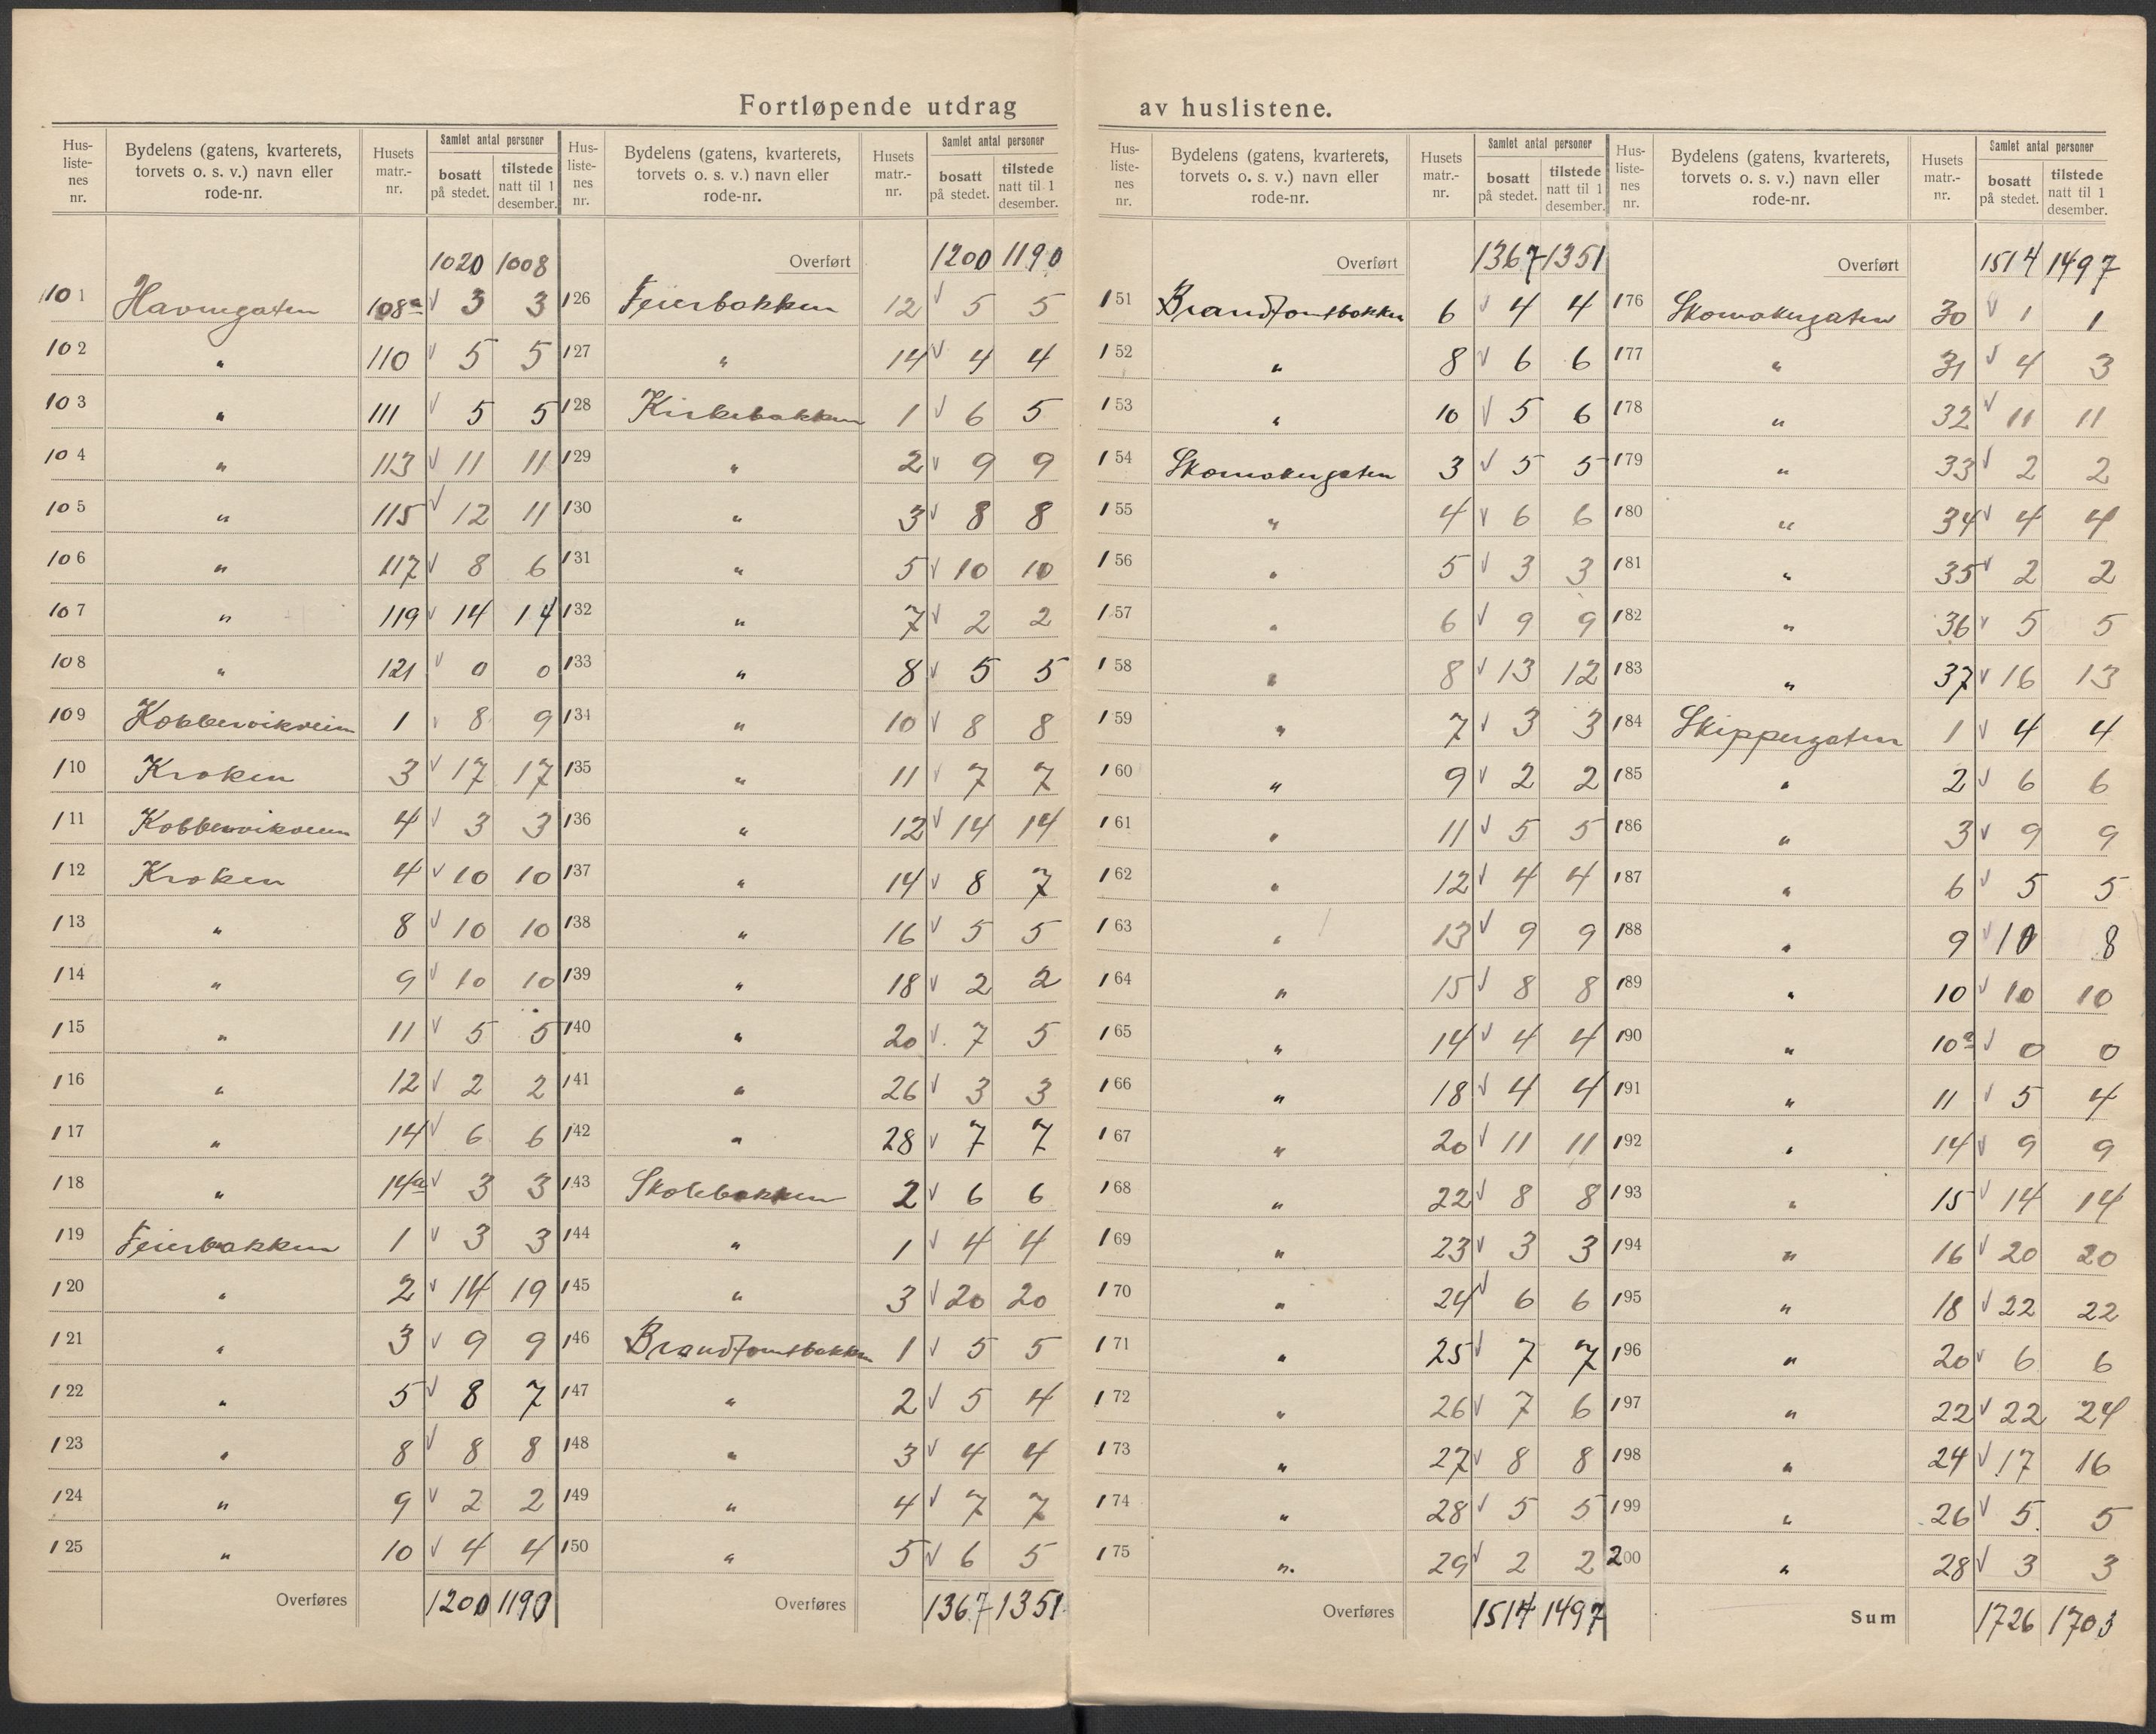 Fortløpende utdrag av huslistene.
Hus-listenes nr. | Bydelens (gatens, kvarterets, torvets o. s. v.) navn eller rode-nr. | Husets matr.-nr. | Samlet antal personer bosatt på stedet. | tilstede natt til 1 desember.
1020 1008
101 Havnegaten 108a √ 3 3
102 " 110 √ 5 5
103 " 111 √ 5 5
104 " 113 √ 11 11
105 " 115 √ 12 11
106 " 117 √ 8 6
107 " 119 √ 14 14
108 " 121 √ 0 0
109 Kobbervikveien 1 √ 8 9
110 Kroken 3 √ 17 17
111 Kobbervikveien 4 √ 3 3
112 Kroken 4 √ 10 10
113 " 8 √ 10 10
114 " 9 √ 10 10
115 " 11 √ 5 5
116 " 12 √ 2 2
117 " 14 √ 6 6
118 " 14a √ 3 3
119 Feierbakken 1 √ 3 3
120 " 2 √ 14 19
121 " 3 √ 9 9
122 " 5 √ 8 7
123 " 8 √ 8 8
124 " 9 √ 2 2
125 " 10 √ 4 4
Overføres 1200 1190
Hus-listenes nr. | Bydelens (gatens, kvarterets, torvets o. s. v.) navn eller rode-nr. | Husets matr.-nr. | Samlet antal personer bosatt på stedet. | tilstede natt til 1 desember.
Overført 1200 1190
126 Feierbakken 12 √ 5 5
127 " 14 √ 4 4
128 Kirkebakken 1 √ 6 5
129 " 2 √ 9 9
130 " 3 √ 8 8
131 " 5 √ 10 10
132 " 7 √ 2 2
133 " 8 √ 5 5
134 " 10 √ 8 8
135 " 11 √ 7 7
136 " 12 √ 14 14
137 " 14 √ 8 7
138 " 16 √ 5 5
139 " 18 √ 2 2
140 " 20 √ 7 5
141 " 26 √ 3 3
142 " 28 √ 7 7
143 Skolebakken 2 √ 6 6
144 " 1 √ 4 4
145 " 3 √ 20 20
146 Brandtomtbakken 1 √ 5 5
147 " 2 √ 5 4
148 " 3 √ 4 4
149 " 4 √ 7 7
150 " 5 √ 6 5
Overføres 1367 1351
Hus-listenes nr. | Bydelens (gatens, kvarterets, torvets o. s. v.) navn eller rode-nr. | Husets matr.-nr. | Samlet antal personer bosatt på stedet. | tilstede natt til 1 desember.
Overført 1367 1351
151 Brandtomtbakken 6 √ 4 4
152 " 8 √ 6 6
153 " 10 √ 5 6
154 Skomakergaten 3 √ 5 5
155 " 4 √ 6 6
156 " 5 √ 3 3
157 " 6 √ 9 9
158 " 8 √ 13 12
159 " 7 √ 3 3
160 " 9 √ 2 2
161 " 11 √ 5 5
162 " 12 √ 4 4
163 " 13 √ 9 9
164 " 15 √ 8 8
165 " 14 √ 4 4
166 " 18 √ 4 4
167 " 20 √ 11 11
168 " 22 √ 8 8
169 " 23 √ 3 3
170 " 24 √ 6 6
171 " 25 √ 7 7
172 " 26 √ 7 6
173 " 27 √ 8 8
174 " 28 √ 5 5
175 " 29 √ 2 2
Overføres 1514 1497
Hus-listenes nr. | Bydelens (gatens, kvarterets, torvets o. s. v.) navn eller rode-nr. | Husets matr.-nr. | Samlet antal personer bosatt på stedet. | tilstede natt til 1 desember.
Overført 1514 1497
176 Skomakergaten 30 √ 1 1
177 " 31 √ 4 3
178 " 32 √ 11 11
179 " 33 √ 2 2
180 " 34 √ 4 4
181 " 35 √ 2 2
182 " 36 √ 5 5
183 " 37 √ 16 13
184 Skippergaten 1 √ 4 4
185 " 2 √ 6 6
186 " 3 √ 9 9
187 " 6 √ 5 5
188 " 9 √ 10 8
189 " 10 √ 10 10
190 " 10a √ 0 0
191 " 11 √ 5 4
192 " 14 √ 9 9
193 " 15 √ 14 14
194 " 16 √ 20 20
195 " 18 √ 22 22
196 " 20 √ 6 6
197 " 22 √ 22 24
198 " 24 √ 17 16
199 " 26 √ 5 5
200 " 28 √ 3 3
Sum 1726 1703